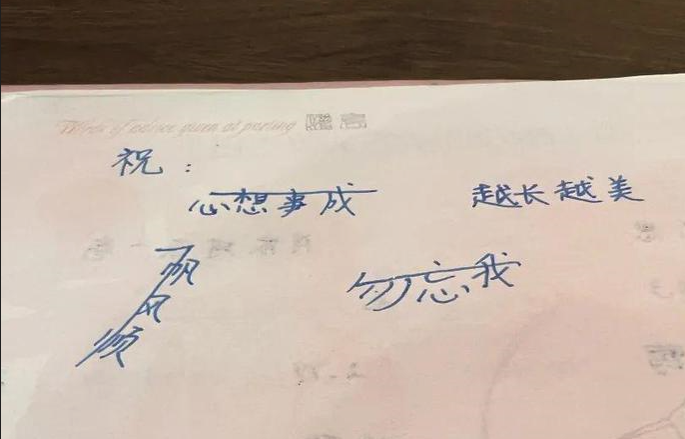 Words of advice given at parting 赠言
祝：
心想事成 越长越美
一帆风顺 勿忘我